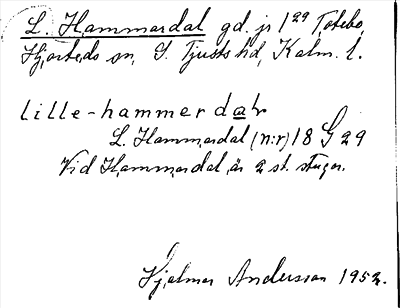 L. Hammardal gd. js 1²⁹ Totebo,
Hjorteds sn, S. Tjusts hd, Kalm. l.
lille-hammerdaɫr
L. Hammerdal (n:r) 18 G 29
Vid Hammerdal är 2 st. stugor.
Hjalmar Andersson 1952.